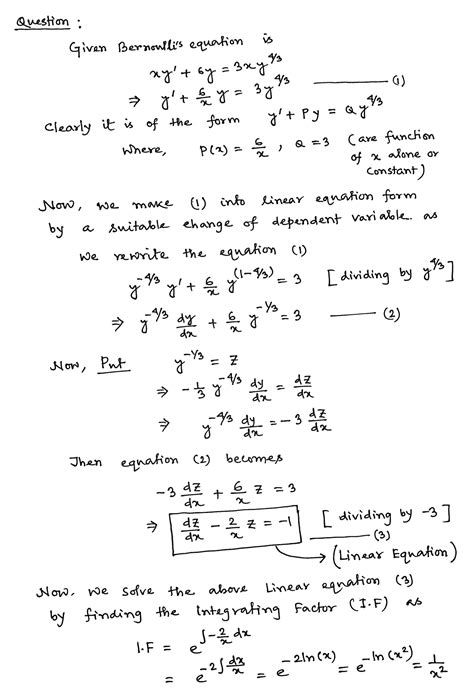 Question :
Given Bernoulli's equation is
xy' + 6y = 3xy^{4/3}
⇒ y' + 6/x y = 3y^{4/3} ——— (1)
Clearly it is of the form y' + Py = Qy^{4/3}
Where, P(x) = 6/x , Q = 3 (are function of x alone or constant)
Now, we make (1) into linear equation form
by a suitable change of dependent variable. as
We rewrite the equation (1)
y^{-4/3} y' + 6/x y^{(1-4/3)} = 3 [dividing by y^{4/3}]
⇒ y^{-4/3} dy/dx + 6/x y^{-1/3} = 3 ——— (2)
Now, Put y^{-1/3} = z
⇒ -1/3 y^{-4/3} dy/dx = dz/dx
⇒ y^{-4/3} dy/dx = -3 dz/dx
Then equation (2) becomes
-3 dz/dx + 6/x z = 3
⇒ dz/dx - 2/x z = -1 [dividing by -3]
——— (3)
→ (Linear Equation)
Now. We solve the above Linear equation (3)
by finding the Integrating Factor (I.F) as
I.F = e^{∫-2/x dx}
= e^{-2∫dx/x} = e^{-2ln(x)} = e^{-ln(x²)} = 1/x²